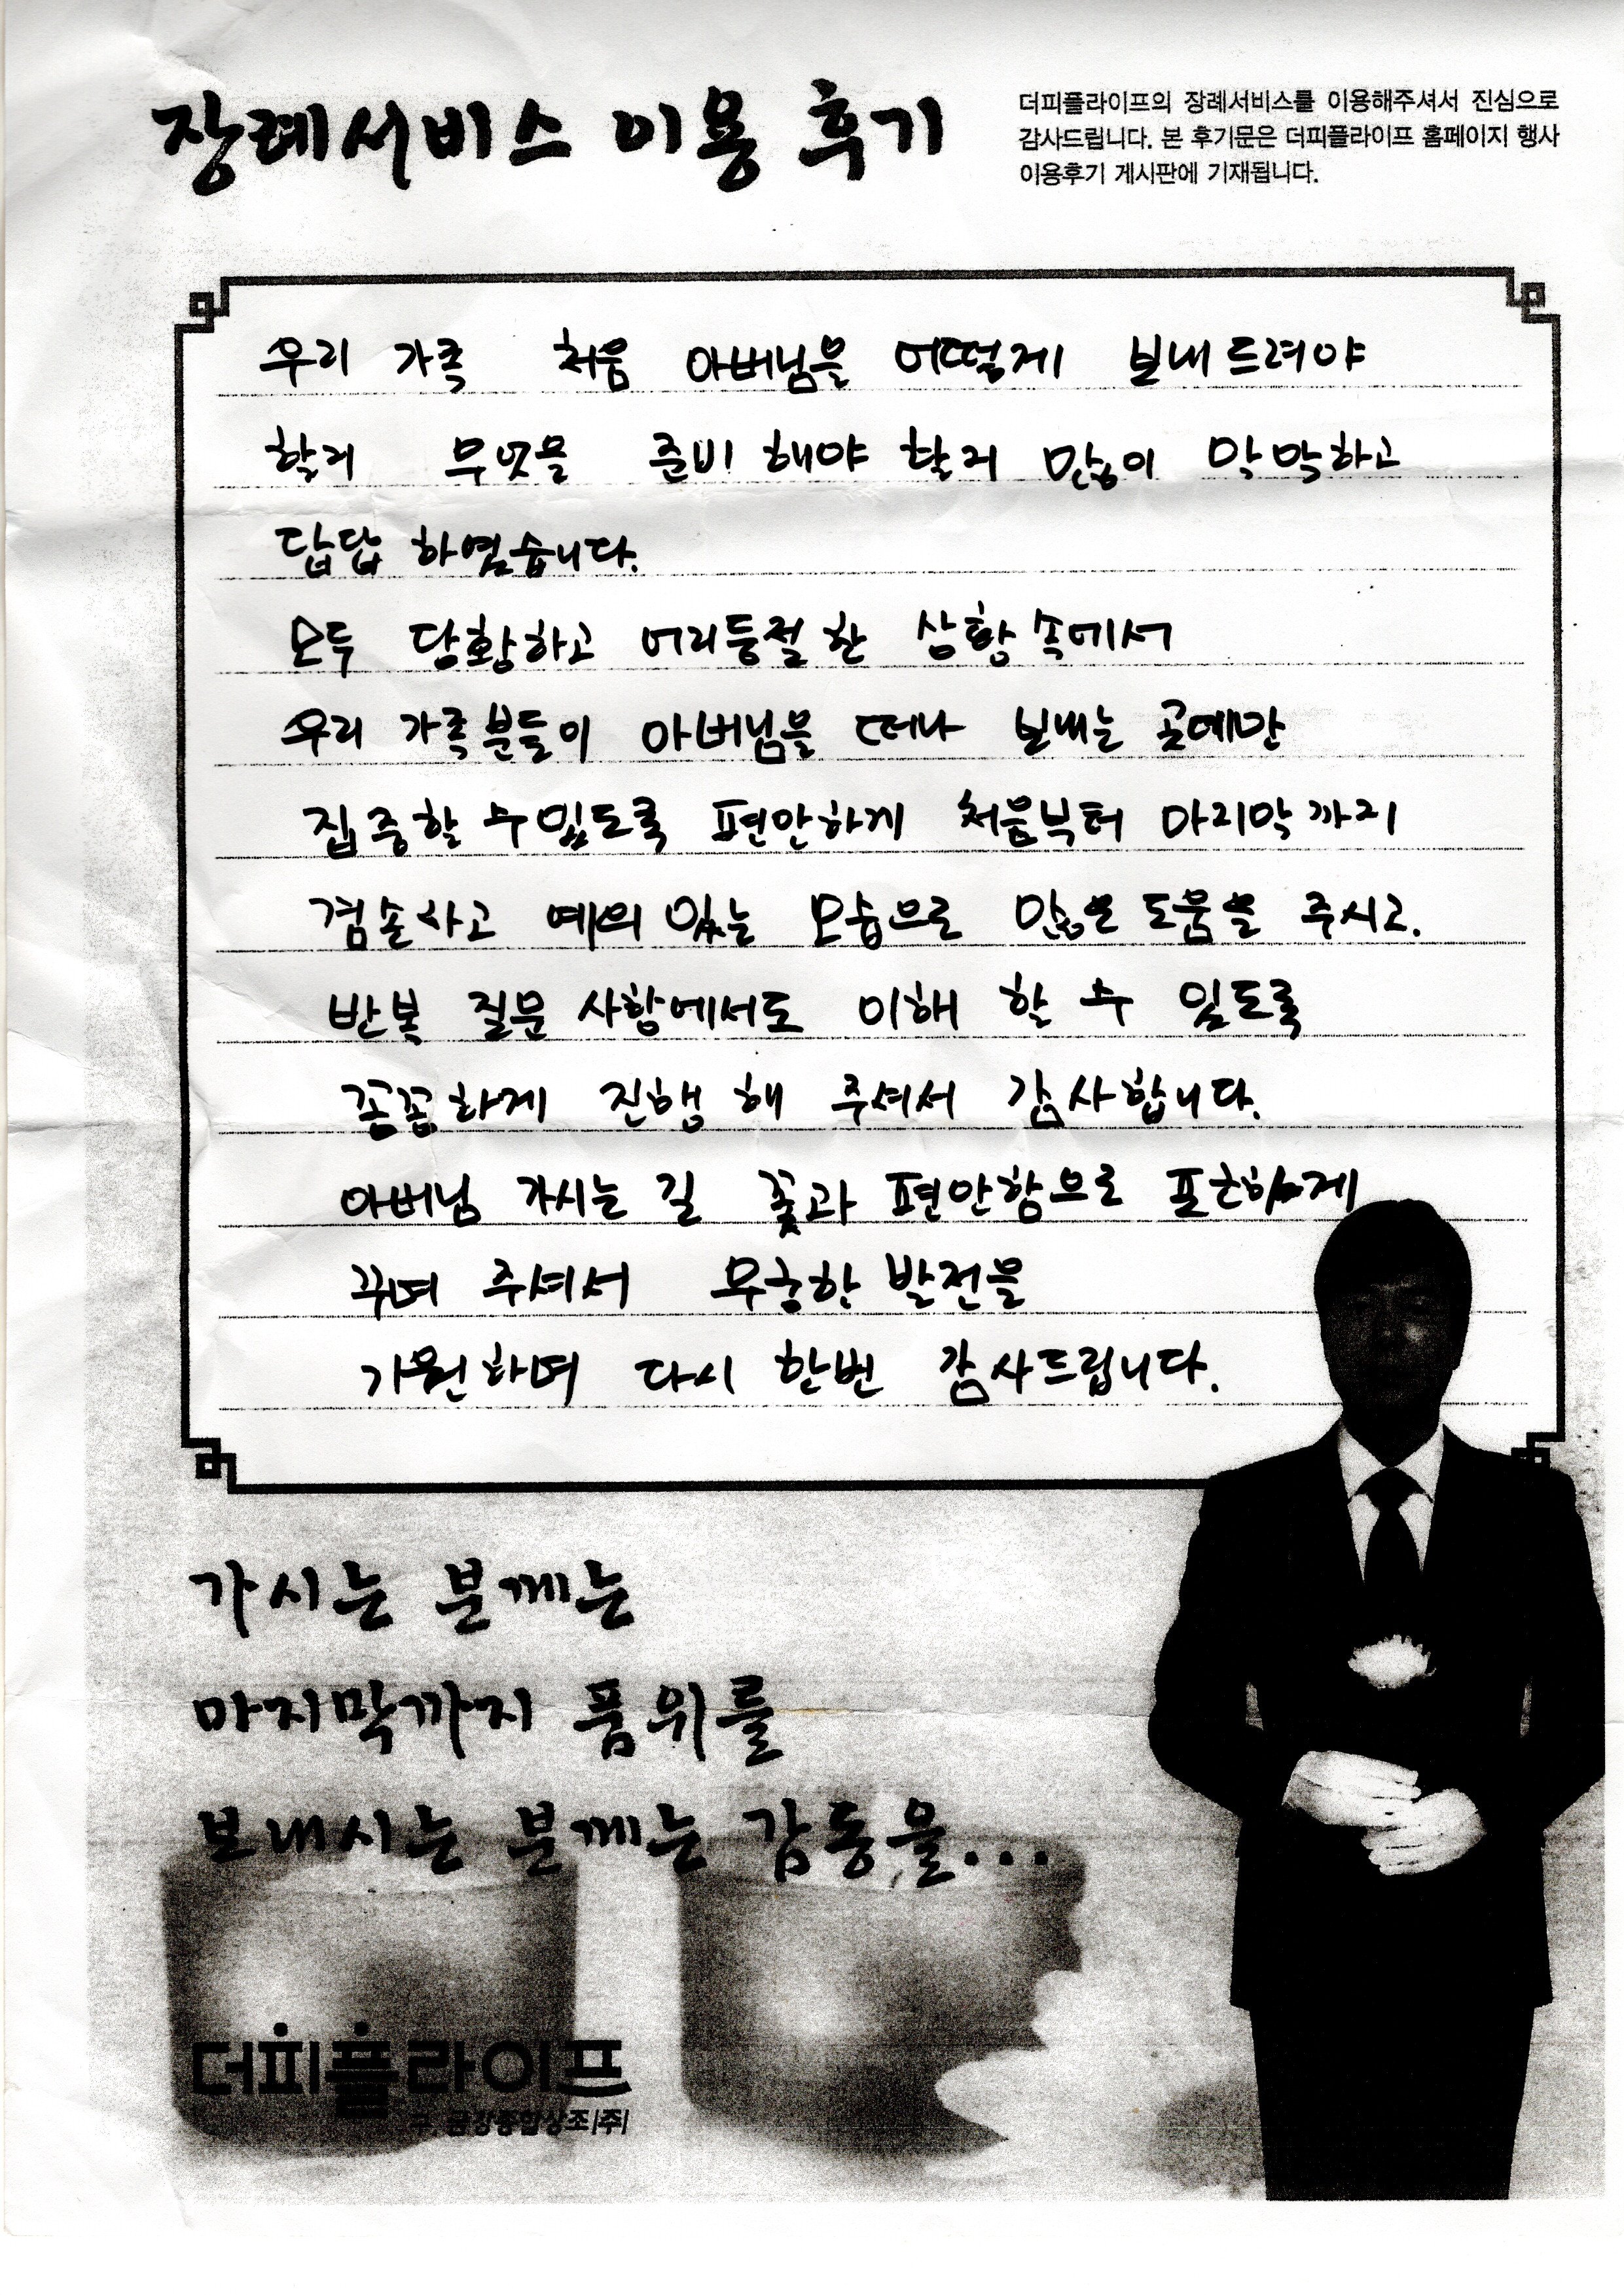 장례서비스 이용 후기
더피플라이프의 장례서비스를 이용해주셔서 진심으로
감사드립니다. 본 후기문은 더피플라이프 홈페이지 행사
이용후기 게시판에 기재됩니다.
우리 가족 처음 아버님을 어떻게 보내드려야
할지 무엇을 준비 해야 할지 많이 막막하고
답답 하였습니다.
모두 당황하고 어리둥절 한 상황 속에서
우리 가족분들이 아버님을 떠나 보내는 곳에만
집중할 수 있도록 편안하게 처음부터 마지막 까지
겸손사고 예의 있는 모습으로 많은 도움을 주시고.
반복 질문 사항에서도 이해 할 수 있도록
꼼꼼하게 진행 해 주셔서 감사합니다.
아버님 가시는 길 꽃과 편안함으로 포근하게
꾸며 주셔서 무궁한 발전을
기원하며 다시 한번 감사드립니다.
가시는 분께는
마지막까지 품위를
보내시는 분께는 감동을...
더피플라이프
구. 금강종합상조(주)